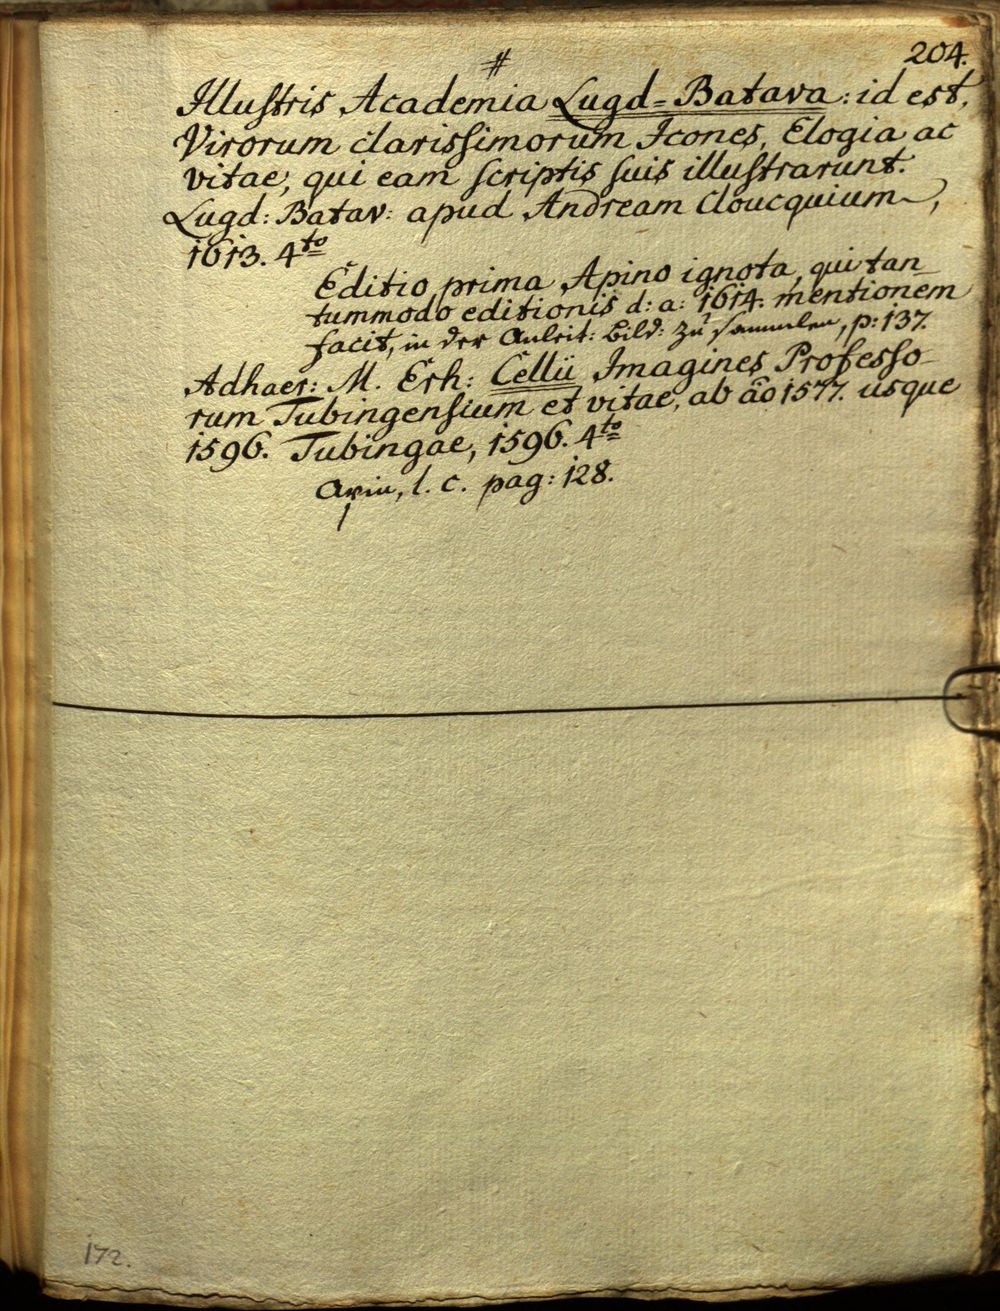 204.
#
Illustris Academia Lugd=Batava: id est,
Virorum clarissimorum Icones, Elogia ac
vitae, qui eam scriptis suis illustrarunt.
Lugd: Batav: apud Andream Cloucquium,
1613. 4to
Editio prima Apino ignota, qui tan
tummodo editionis d: a: 1614. mentionem
facit, in der Anleit: Bild: zu sammlen, p: 137.
Adhaer: M. Erh: Cellii Imagines Professo
rum Tubingensium et vitae, ab ao 1577. usque
1596. Tubingae, 1596. 4to
Apin, l. c. pag: 128.
172.